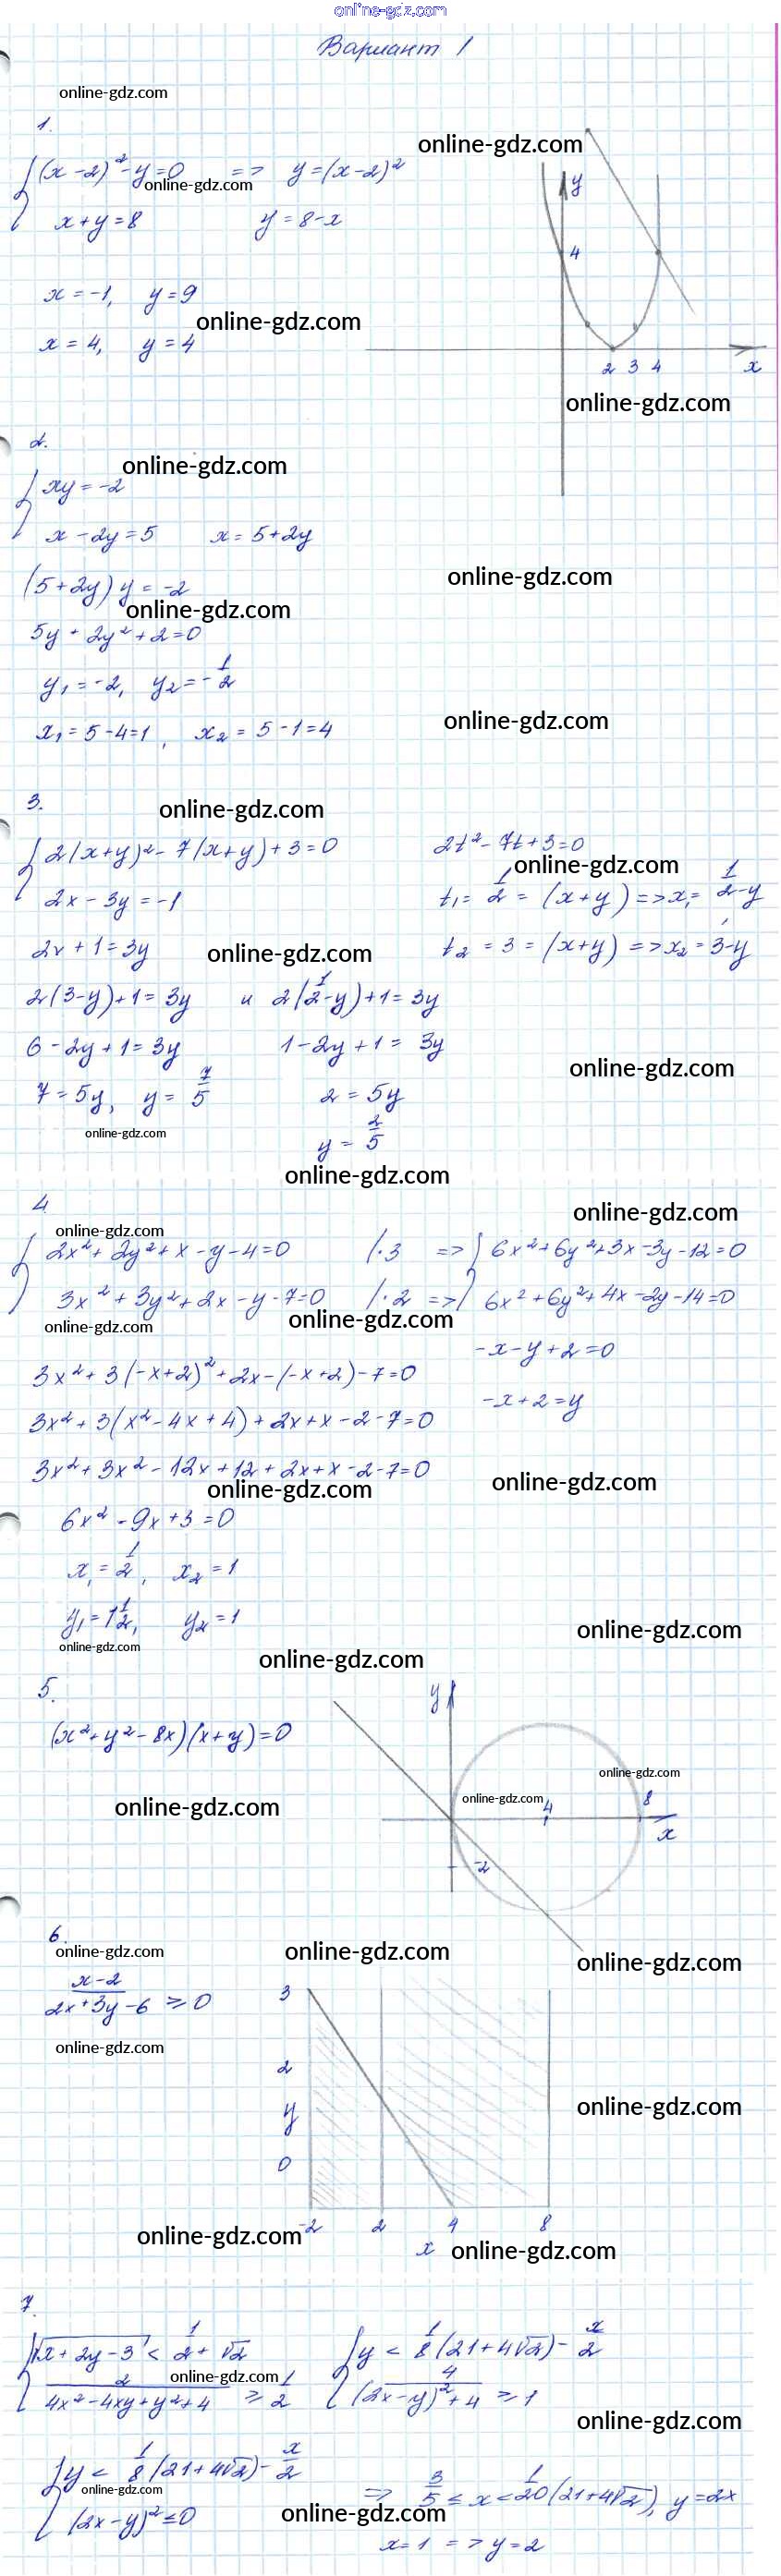 online-gdz.com
Вариант 1
online-gdz.com
1.
online-gdz.com
(x-2)²-y=0 => y=(x-2)²
online-gdz.com
x+y=8 y=8-x
y
4
x=-1, y=9
online-gdz.com
x=4, y=4
2 3 4 x
online-gdz.com
2.
online-gdz.com
xy=-2
x-2y=5 x=5+2y
online-gdz.com
(5+2y)y=-2
online-gdz.com
5y+2y²+2=0
y₁=-2, y₂=-1/2
online-gdz.com
x₁=5-4=1, x₂=5-1=4
3.
online-gdz.com
2(x+y)²-7(x+y)+3=0 2t²-7t+3=0
online-gdz.com
2x-3y=-1 t₁=1/2=(x+y)=>x₁=1/2-y
2x+1=3y t₂=3=(x+y)=>x₂=3-y
online-gdz.com
2(3-y)+1=3y и 2(1/2-y)+1=3y
6-2y+1=3y 1-2y+1=3y
online-gdz.com
7=5y, y=7/5 2=5y
online-gdz.com
y=2/5
online-gdz.com
4.
online-gdz.com
online-gdz.com
2x²+2y²+x-y-4=0 |·3 => 6x²+6y²+3x-3y-12=0
3x²+3y²+2x-y-7=0 |·2 => 6x²+6y²+4x-2y-14=0
online-gdz.com
online-gdz.com
-x-y+2=0
3x²+3(-x+2)²+2x-(-x+2)-7=0
-x+2=y
3x²+3(x²-4x+4)+2x+x-2-7=0
3x²+3x²-12x+12+2x+x-2-7=0
online-gdz.com
online-gdz.com
6x²-9x+3=0
x₁=1/2, x₂=1
y₁=1 1/2, y₂=1
online-gdz.com
online-gdz.com
online-gdz.com
5.
y
(x²+y²-8x)(x+y)=0
online-gdz.com
online-gdz.com
online-gdz.com
4 8
x
-2
6.
online-gdz.com
online-gdz.com
online-gdz.com
(x-2)/(2x+3y-6) ≥ 0
3
online-gdz.com
2
y
online-gdz.com
0
-2 2 4 8
x
online-gdz.com
online-gdz.com
7.
√x+2y-3 < 1/2+√2 y < 1/8(21+4√2)-x/2
online-gdz.com
2/(4x²-4xy+y²+4) ≥ 1/2 4/((2x-y)²+4) ≥ 1
online-gdz.com
y < 1/8(21+4√2)-x/2
online-gdz.com
(2x-y)²≤0 => 3/5 ≤ x < 1/20(21+4√2), y=2x
online-gdz.com
x=1 => y=2